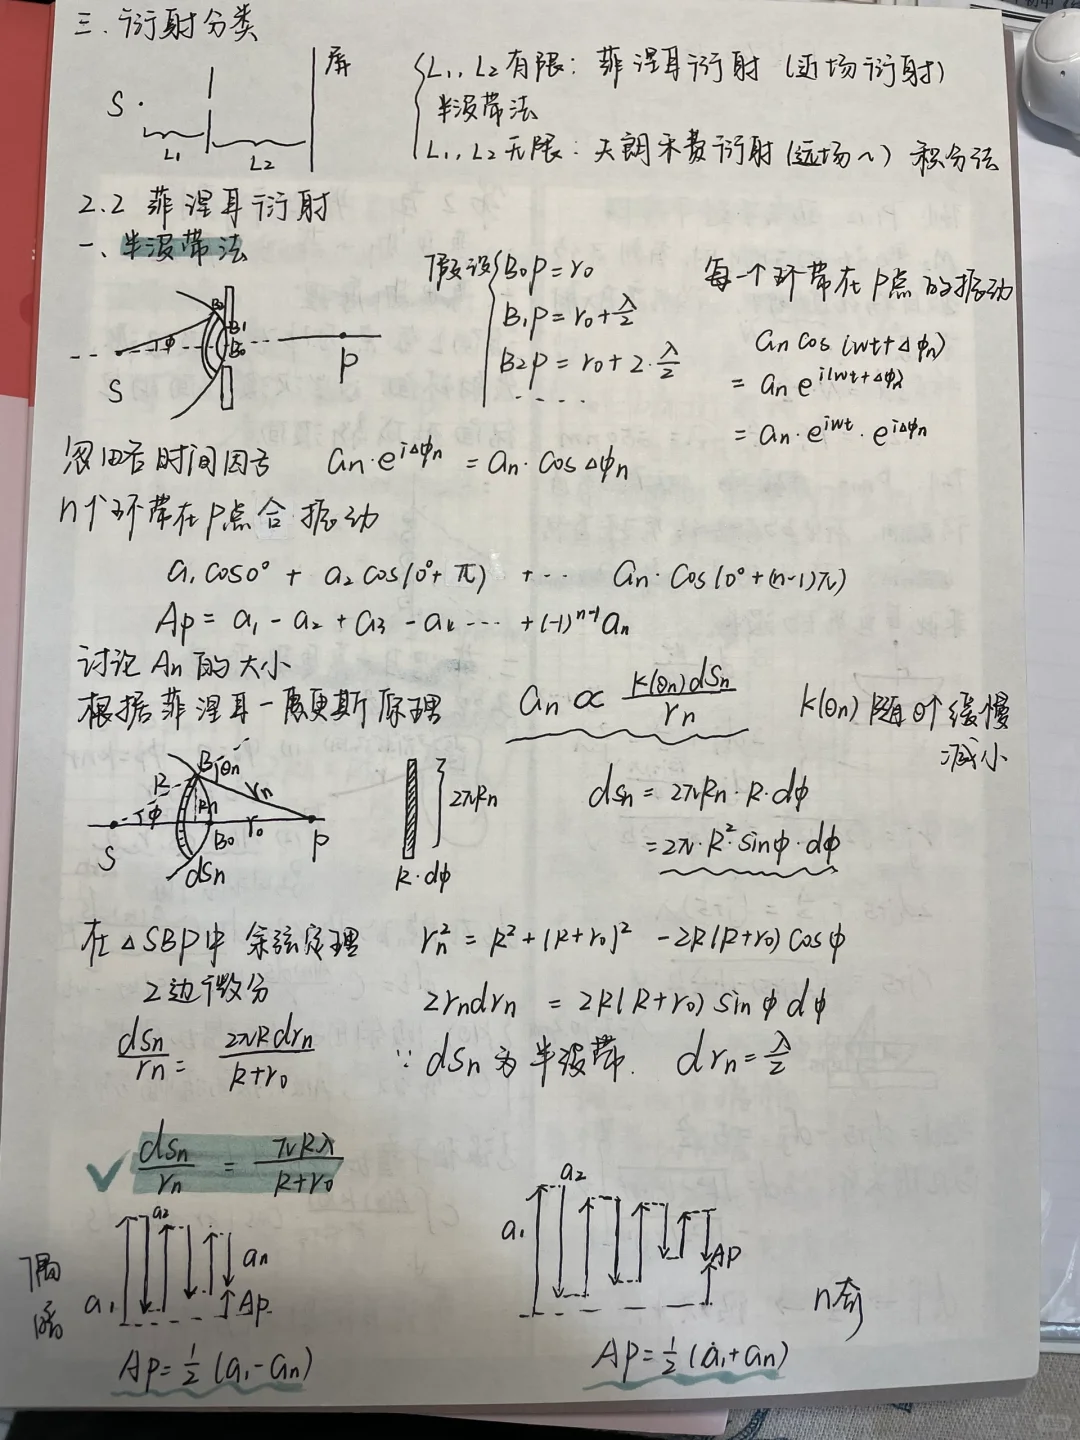 三.衍射分类
S
L1
L2
屏
L1, L2有限：菲涅耳衍射（近场衍射）
半波带法
L1, L2无限：夫朗禾费衍射（远场～）积分法
2.2 菲涅耳衍射
一、半波带法
S φ B1 B0 P
假设 B0P = r0
B1P = r0 + λ/2
B2P = r0 + 2·λ/2
.....
每一个环带在P点的振动
an cos(wt+Δφn)
= an e^i(wt+Δφn)
= an·e^iwt·e^iΔφn
忽略时间因子 an·e^iΔφn = an·cosΔφn
n个环带在P点合振动
a1 cos0° + a2 cos(0°+π) +... an·cos(0°+(n-1)π)
Ap = a1 - a2 + a3 - a4 ... + (-1)^n-1 an
讨论An的大小
根据菲涅耳-惠更斯原理
an ∝ K(θn)dSn / rn
K(θn)随θ↑缓慢减小
S R φ B θn Rn rn r0 B0 P dSn
2πRn
R·dφ
dSn = 2πRn·R·dφ
= 2π·R²·sinφ·dφ
在△SBP中 余弦定理 rn² = R² + (R+r0)² - 2R(R+r0)cosφ
2边微分 2rndrn = 2R(R+r0) sinφ dφ
dSn/rn = 2πRdrn/(R+r0)
∵ dSn为半波带. drn = λ/2
✓ dSn/rn = πRλ/(R+r0)
偶
a1 a2 an Ap
Ap = 1/2 (a1 - an)
a1 a2 Ap
n奇
Ap = 1/2 (a1 + an)